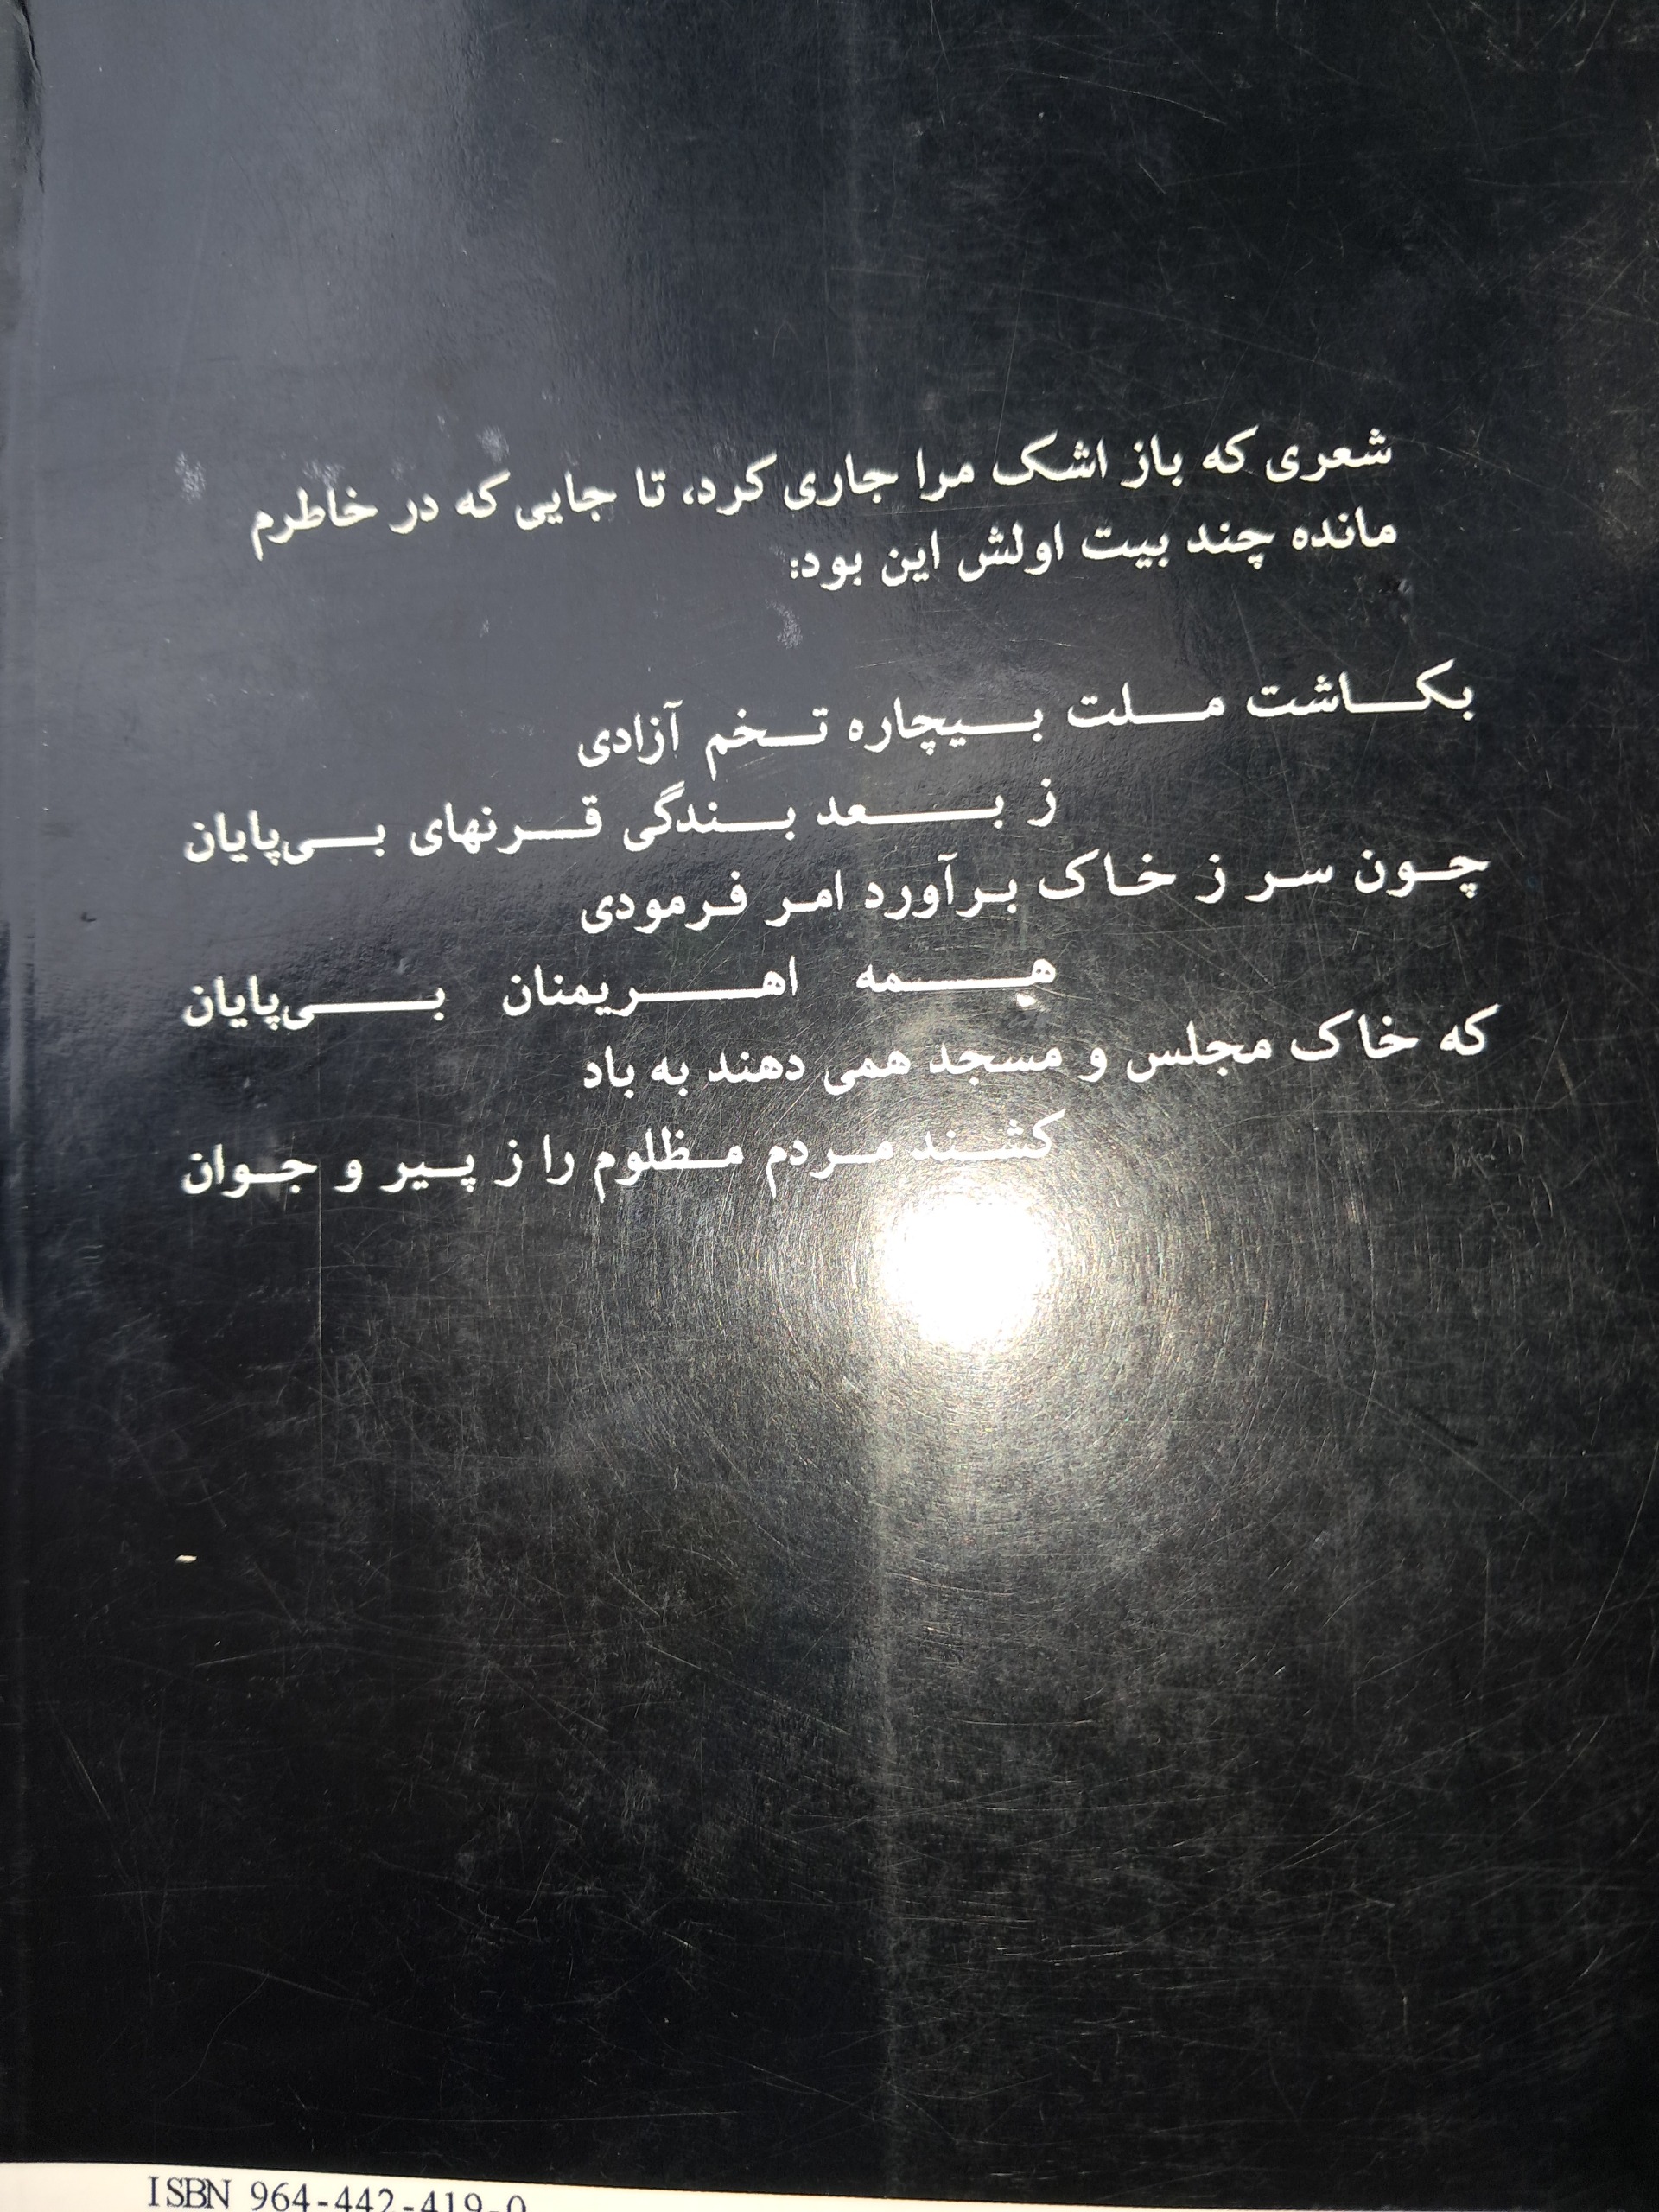 شعری که باز اشک مرا جاری کرد، تا جایی که در خاطرم
مانده چند بیت اولش این بود:
بکاشت ملت بیچاره تخم آزادی
ز بعد بندگی قرنهای بی‌پایان
چون سر ز خاک برآورد امر فرمودی
همه اهریمنان بی‌پایان
که خاک مجلس و مسجد همی دهند به باد
کشند مردم مظلوم را ز پیر و جوان
ISBN 964-442-419-0